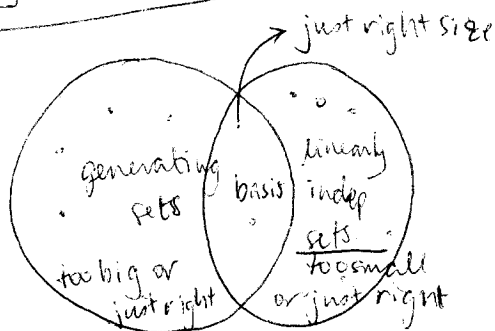 just right size
generating
sets
too big or
just right
basis
linearly
indep
sets
too small
or just right